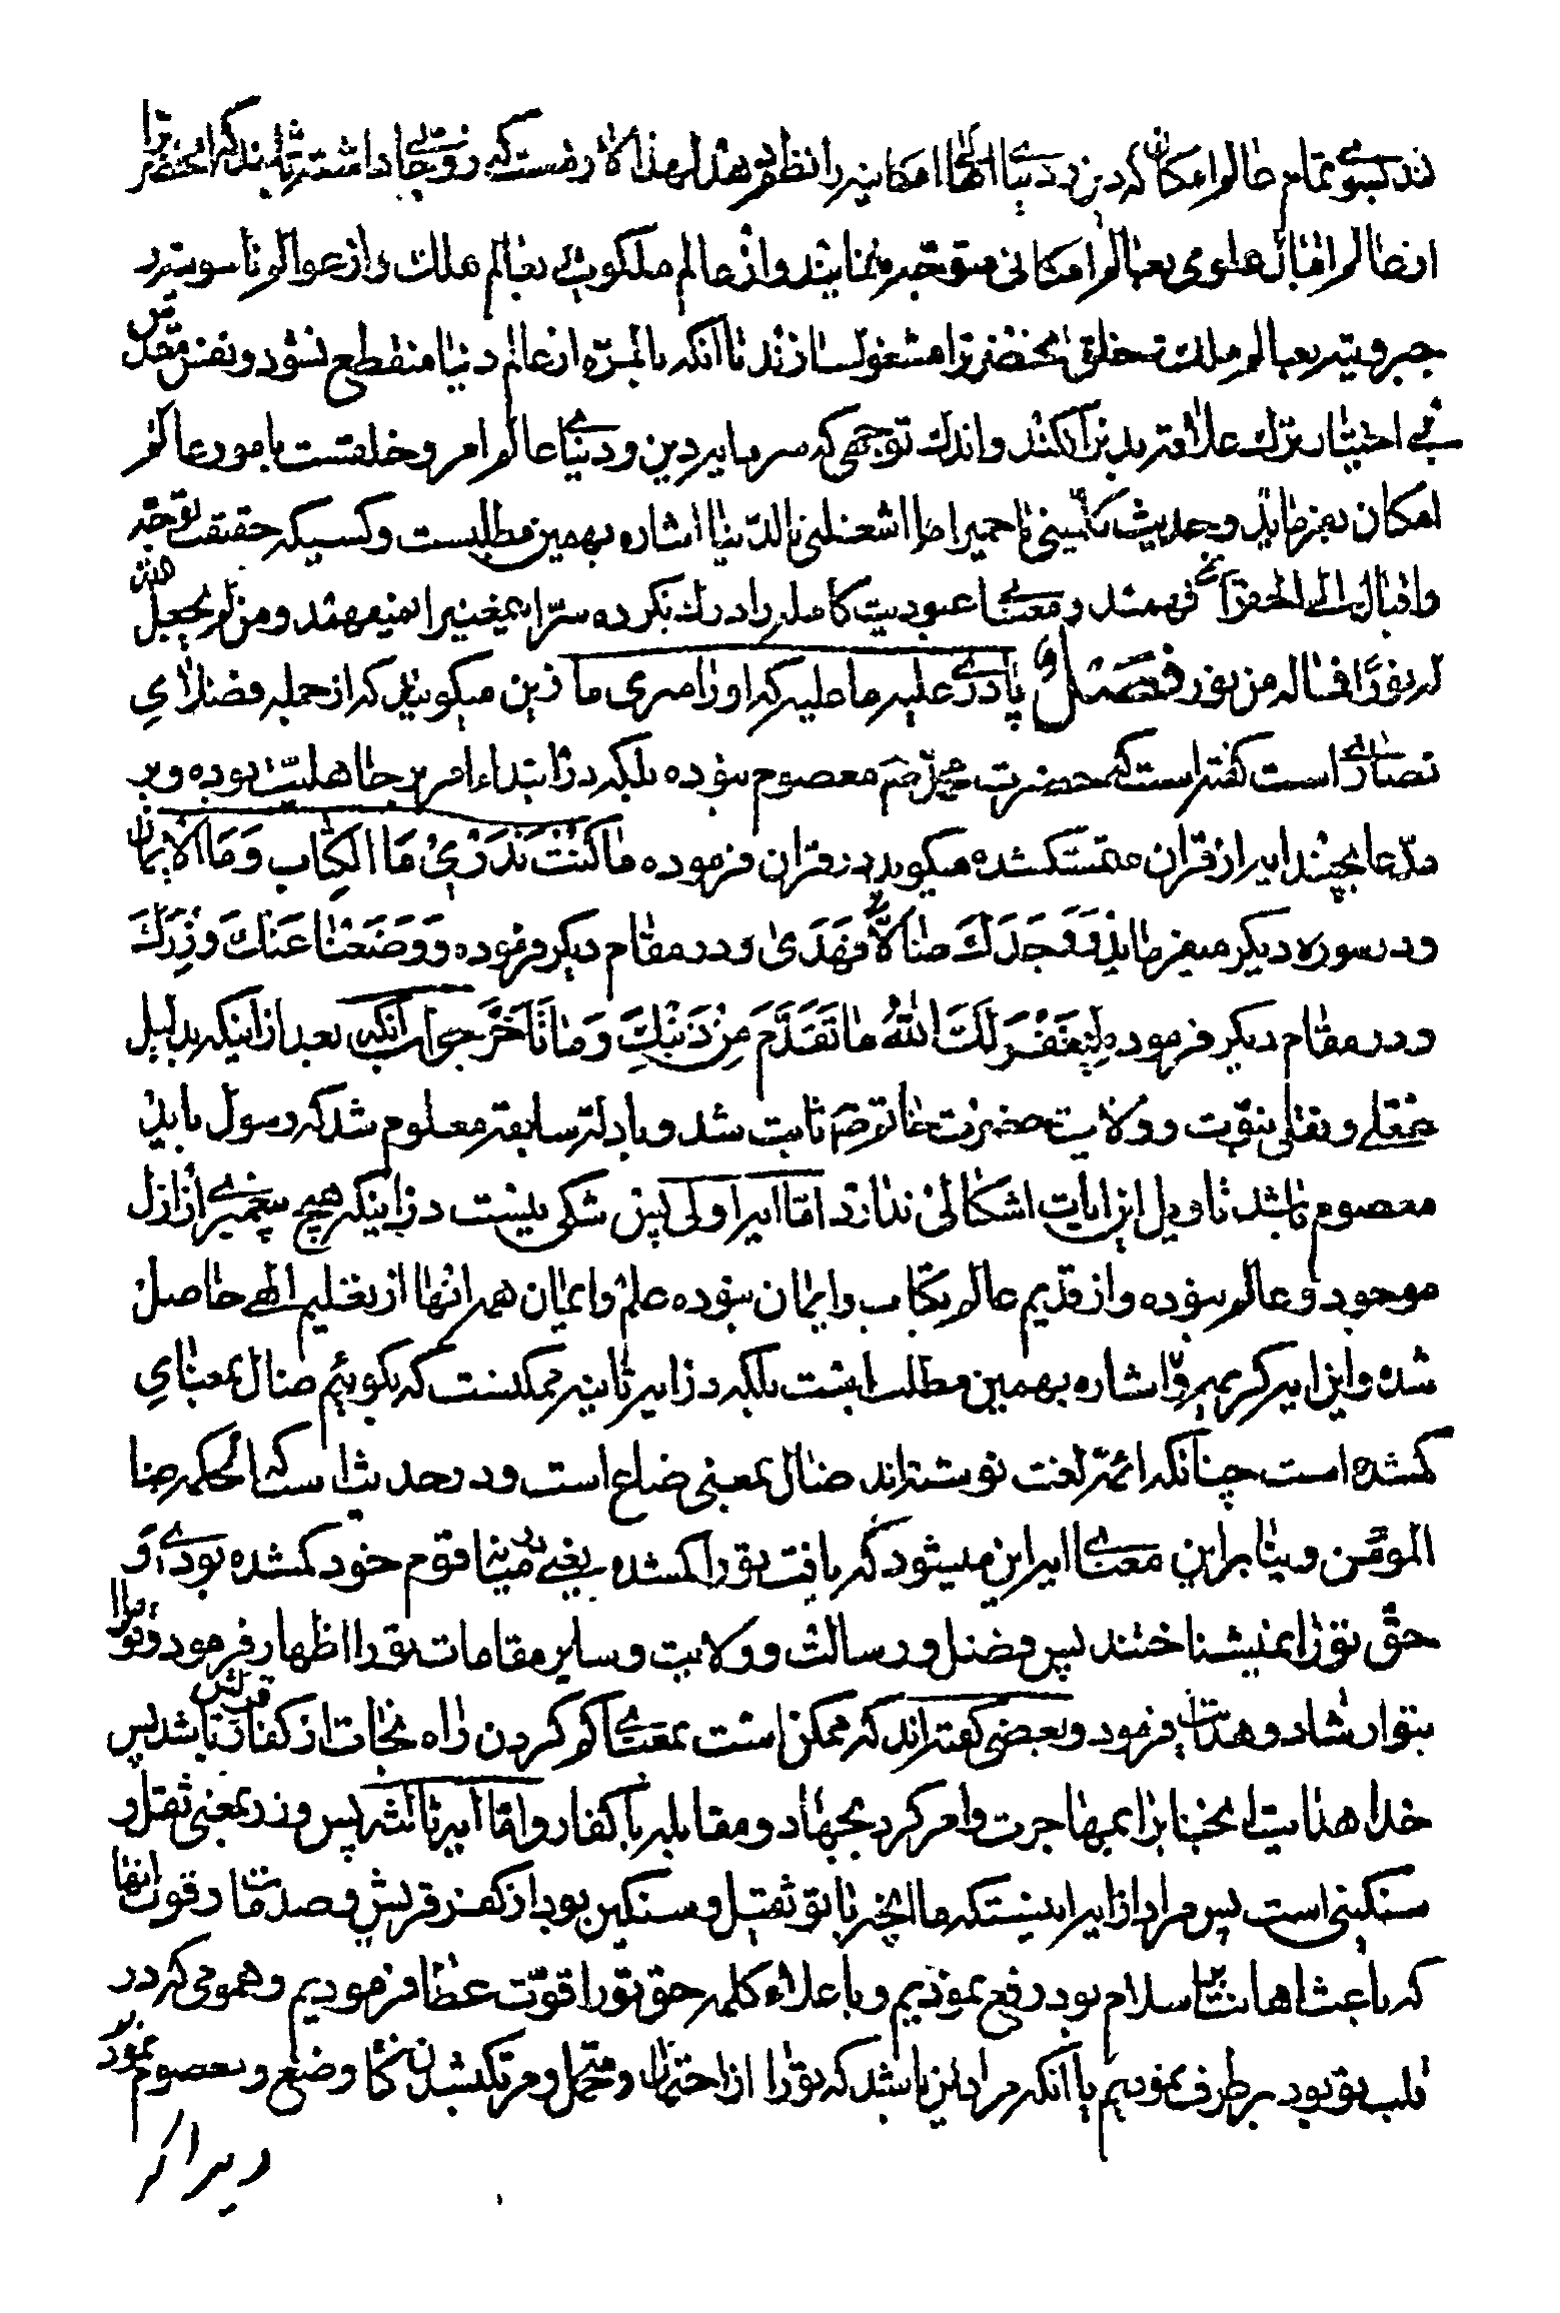 ند بسوی تمام عالم امکان که در نزد دنیای الهی امکانیه را نظم بدهد لهذا لازمست که زوجهٔ داشته باشند که آنحضرت را
از عالم اقبال علوی بعالم امکانی متوجه نمایند و از عالم ملکوتی بعالم ملک و از عوالم ناسوتیه
جبروتیه بعالم ملک خلقی آنحضرترا مشغول سازند تا آنکه بالمرّه از عالم دنیا منقطع نشود و نفس مقدس
بی اختیار ترک علاقه بدنرا نکند و اندک توجهی که سرمایه دین و دنیای عالم امر و خلقست بامور عالم
امکان بفرماید و حدیث کلمینی یا حمیرا و اشغلینی بالدنیا اشاره بهمین مطلبست و کسیکه حقیقت توجه
و اقبال الی الحق را نفهمد و معنای عبودیت کامله را درک نکرده سرّ این معنی را نمیفهمد و من لم یجعل الله
له نورًا فما له من نور فصل و پادری علیه ما علیه که او را هنری مارتین میگویند که از جمله فضلای
نصاری است گفته است که حضرت محمّد صم معصوم نبوده بلکه در ابتداء امر بر جاهلیّت بوده و بر
مدّعا بچند ایه از قران متمسک شده میگوید در قران فرموده مَا کُنْتَ تَدْرِیْ مَا الکِتَاب وَمَا الْاِیْمَان
و در سوره دیگر میفرماید فَوَجَدَكَ ضَالًّا فَهَدَیٰ و در مقام دیگر فرموده وَوَضَعْنَا عَنْكَ وِزْرَكَ
و در مقام دیگر فرموده لِیَغْفِرَ لَكَ اللّٰهُ مَا تَقَدَّمَ مِنْ ذَنْبِكَ وَمَا تَاَخَّرَ جواب آنکه بعد از اینکه بدلیل
عقلی و نقلی نبوّت و ولایت حضرت خاتم صم ثابت شد و بادله سابقه معلوم شد که رسول باید
معصوم باشد تاویل این ایات اشکالی ندارد امّا ایه اولی پس شکی نیست در اینکه هیچ پیغمبری از ازل
موجود و عالم نبوده و از قدیم عالم بکتاب و ایمان نبوده علم و ایمان همه انها از تعلیم الهی حاصل
شده و این ایه کریمه و اشاره بهمین مطلب است بلکه در ایه ثانیه ممکنست که بگوئیم ضال بمعنای
گمشده است چنانکه ائمّه لغت نوشته‌اند ضال بمعنی ضاع است و در حدیث است که الحکمه ضالة
المؤمن و بنا بر این معنای ایه این میشود که یافت تو را گمشده یعنی در میان قوم خود گمشده بودی و
حقّ تو را نمیشناختند پس فضل و رسالت و ولایت و سایر مقامات تو را اظهار فرمود و تو را
بتو ارشاد و هدایت فرمود و بعضی گفته‌اند که ممکن است بمعنای گم کردن راه نجات از کفار قریش باشد پس
خدا هدایت انجناب را بمهاجرت و امر کرد بجهاد و مقابله با کفار و امّا ایه ثالثه پس وزر بمعنی ثقل و
سنگینی است پس مراد از ایه اینستکه ما انچه را بتو ثقیل و سنگین بود از کفر قریش و صدمات و قوت انها
که باعث اهانت اسلام بود رفع نمودیم و باعلاء کلمه حق تو را قوّت عطا فرمودیم و همومی که در
قلب تو بود بر طرف نمودیم یا آنکه مراد این باشد که تو را از احتمال و تحمل و مرتکب شدن گناه وضع و معصوم نمودیم
زیرا که